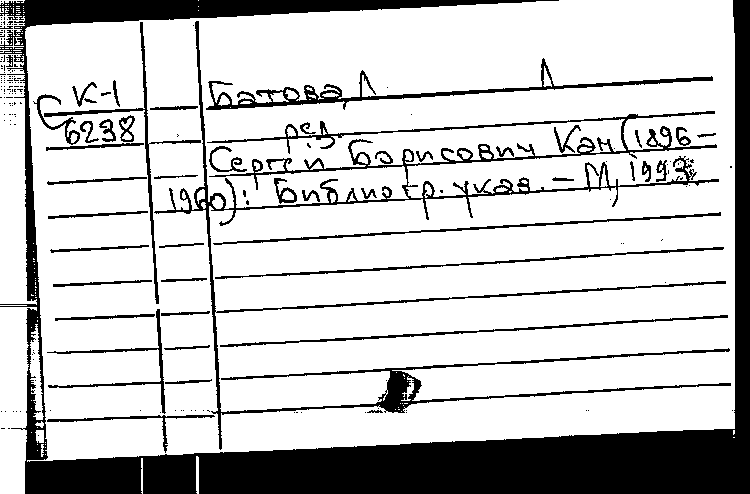 К-1
6238
Батова, Л Л
ред.
Сергей Борисович Кан (1896 –
1960): Библиогр. указ. – М, 1993